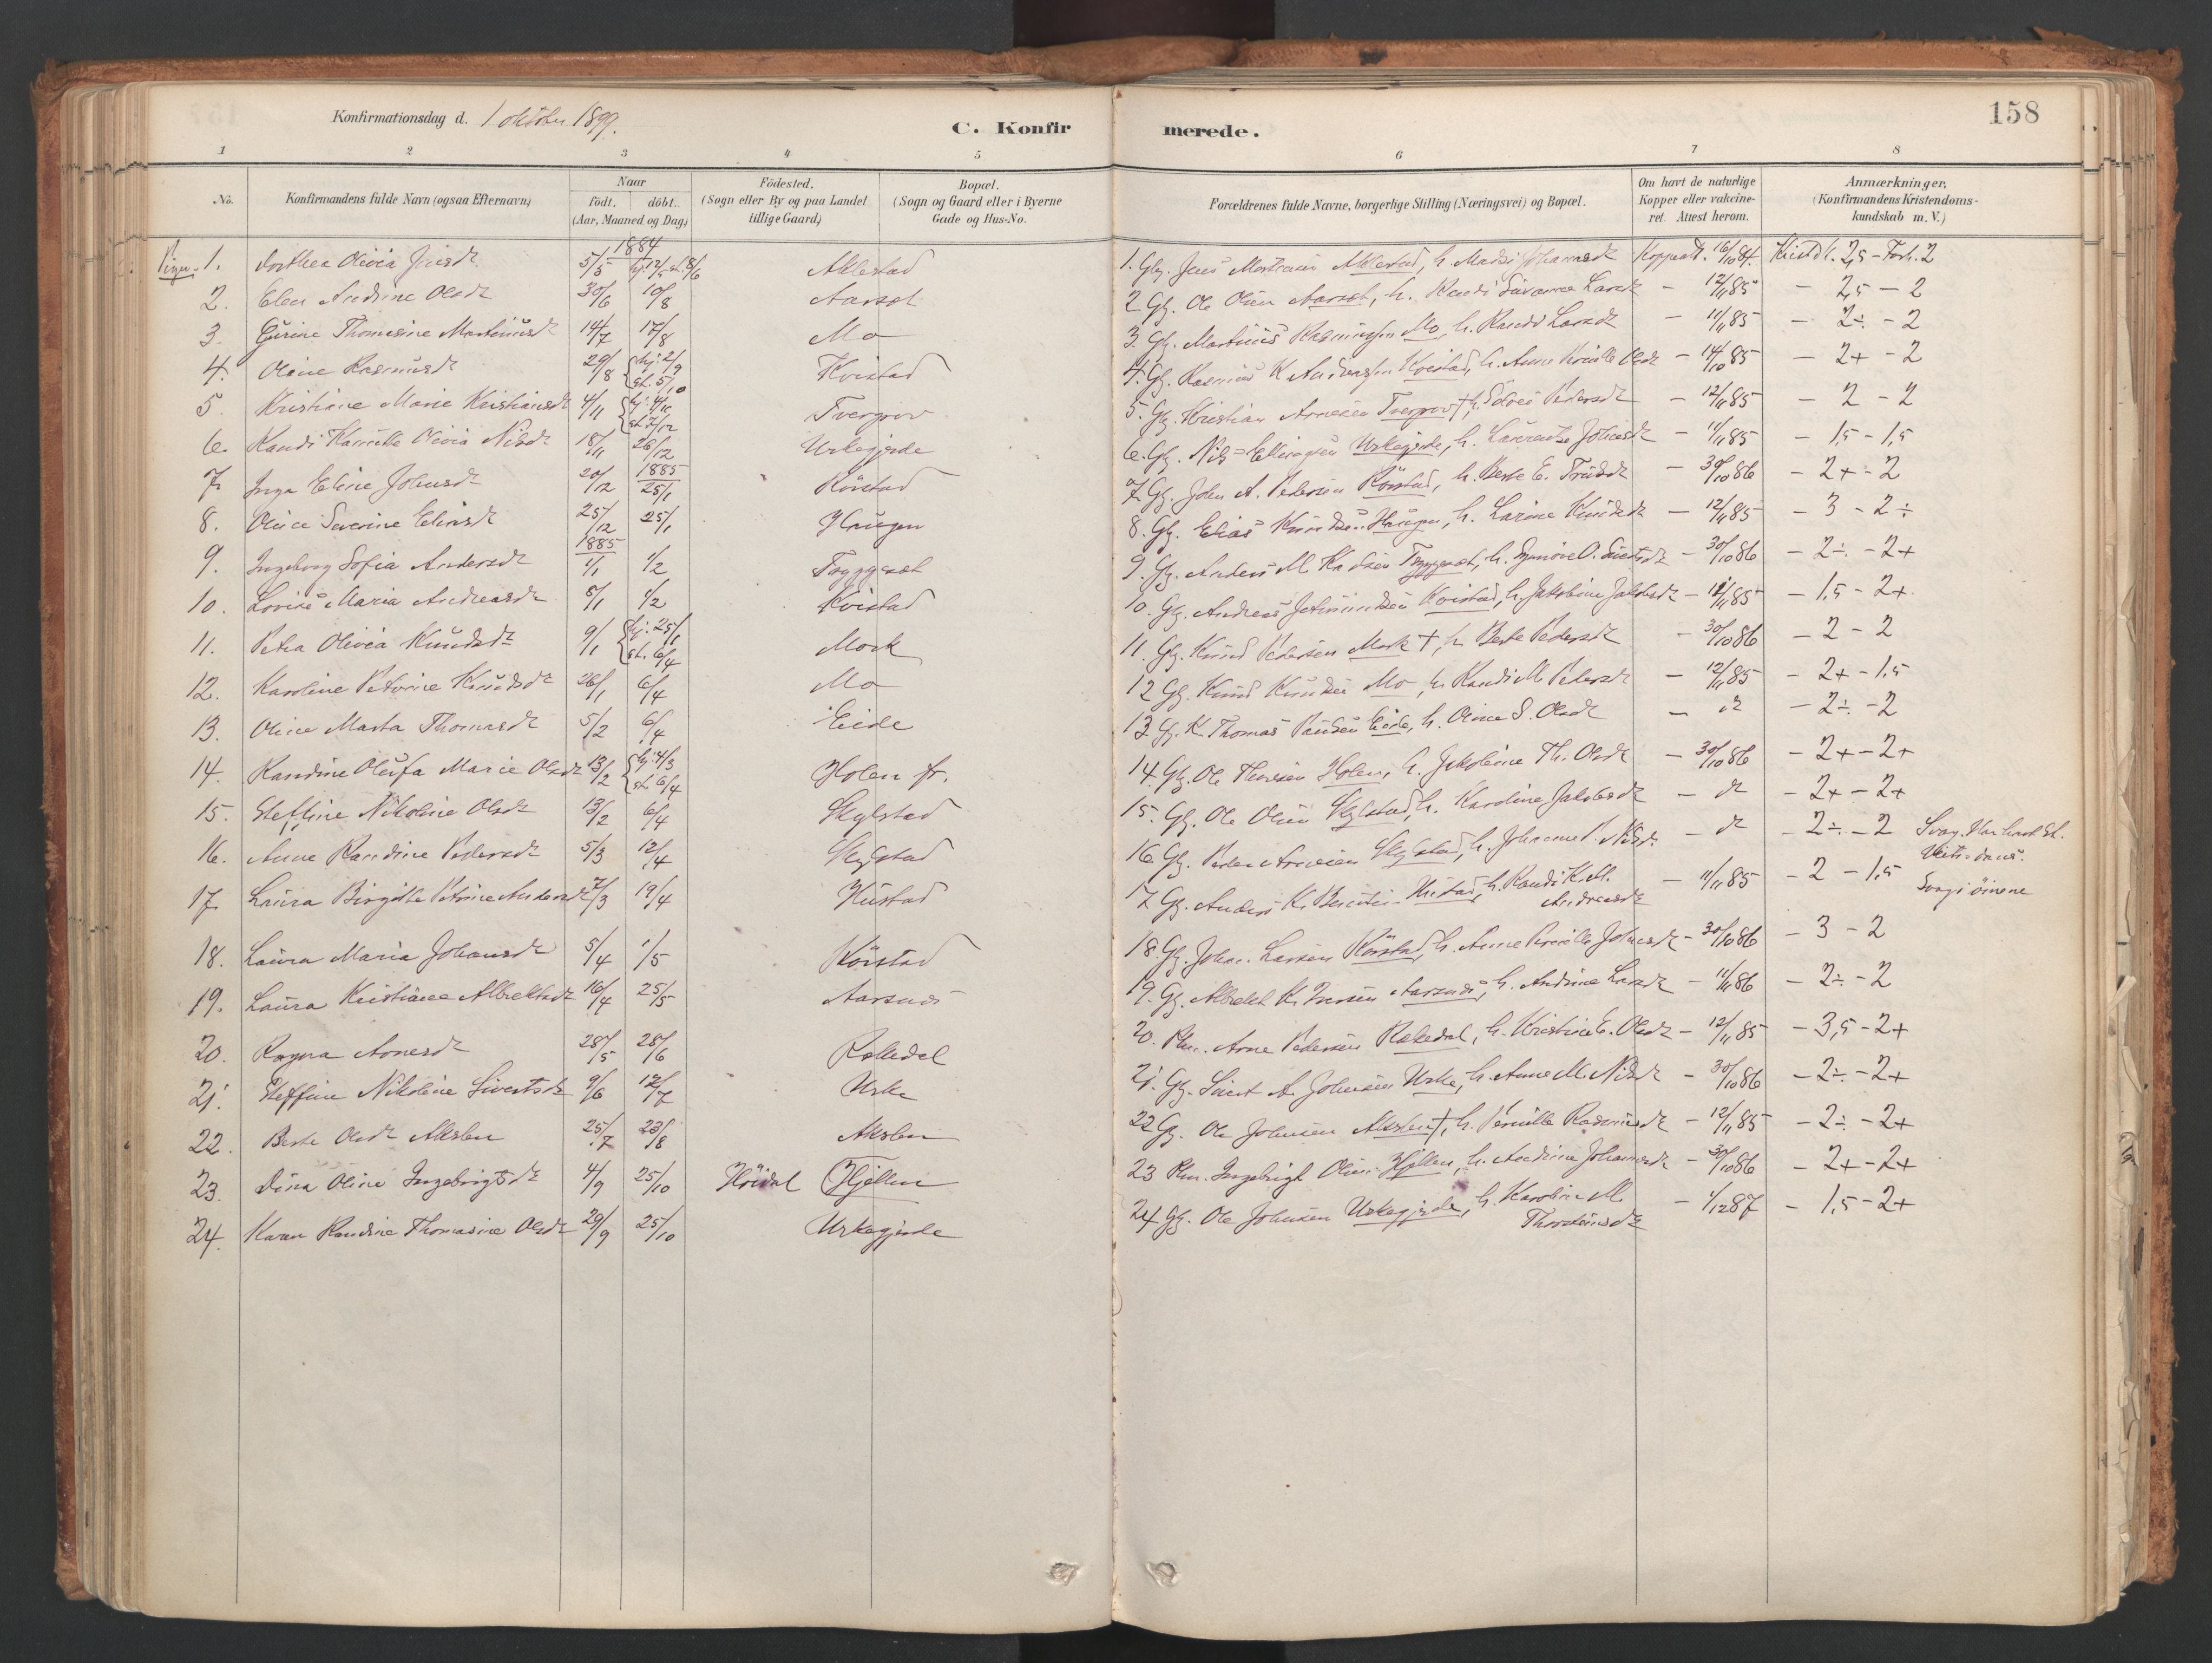 Konfirmationsdag d. 1 oktober 1899.
C. Konfirmerede.
158
1 2 3 4 5 6 7 8
No.
Konfirmandens fulde Navn (ogsaa Efternavn)
Naar
födt. döbt.
(Aar, Maaned og Dag)
Födested.
(Sogn eller By og paa Landet
tillige Gaard)
Bopæl.
(Sogn og Gaard eller i Byerne
Gade og Hus-No.
Forældrenes fulde Navne, borgerlige Stilling (Næringsvei) og Bopæl.
Om havt de naturlige
Kopper eller vakcine-
ret. Attest herom.
Anmærkninger.
(Konfirmandens Kristendoms-
kundskab m. V.)
1884
Piger 1. Dorthea Olivia Jensdr 5/5 hj. 12/5 st. 8/6 Aklestad 1. Gbr. Jens Martinsen Aklestad, h. Johannesdr Koppeatt. 16/10 84. Kristdk. 2,5 - Forh. 2
2. Elen Andrine Olsdr 30/6 10/8 Aarset 2 Gbr. Ole Olsen Aarset, h. Randi Susanna Larsdr - 12/11 85 - 2,5 - 2
3. Gurine Thomasine Martinusdr 14/7 17/8 Mo 3. Gbr. Martinus Rasmussen Mo, h. Randi Larsdr - 11/11 85 - 2÷ - 2
4. Oline Rasmusdr 29/8 {hj. 2/9 st. 5/10 Kvistad 4. Gbr. Rasmus K. Andreassen Kvistad, h. Anne Olsdr - 14/10 85 - 2+ - 2
5. Kristiane Marie Kristiansdr 4/11 {hj. 4/11 st. 7/12 Tvergrov 5. Gbr. Kristian Arnesen Tvergrov †, h. Pedersdr - 12/11 85 - 2 - 2
6. Randi Olivia Nilsdr 18/11 26/12 Urkegjerde 6. Gbr. Nils Ellingsen Urkegjerde, h. Laurentse Johnsdr - 11/11 85 - 1,5 - 1,5
7. Inga Eline Johnsdr 20/12 1885 25/1 Körstad 7. Gbr. John A. Pedersen Körstad, h. Berte E. - 30/10 86 - 2+ - 2
8. Oline Severine Eliasdr 25/12 25/1 Haugen 8. Gbr. Elias Knudsen Haugen, h. Larine Knudsdr - 12/11 85 - 3 - 2÷
1885
9. Ingeborg Sofia Andersdr 1/1 1/2 Tryggeset 9. Gbr. Anders M. Tryggeset, h. Synnöve O. Sivertsdr - 30/10 86 - 2÷ - 2+
10. Lovise Maria Andreasdr 8/1 1/2 Kvistad 10. Gbr. Andreas Kvistad, h. Jakobine Jakobsdr - 12/11 85 - 1,5 - 2+
11. Petra Olivia Knudsdr 9/1 {hj. 25/1 st. 6/4 Mork 11. Gbr. Knud Pedersen Mork †, h. Berte Pedersdr - 30/10 86 - 2 - 2
12. Karoline Petrine Knudsdr 26/1 6/4 Mo 12 Gbr. Knud Knudsen Mo, h. Randi M. Pedersdr - 12/11 85 - 2+ - 1,5
13. Oline Marta Thomasdr 5/2 6/4 Eide 13 Gbr. K. Thomas Eide, h. Oline S. Olsdr - dr - 2÷ - 2
14. Randine Olufa Marie Olsdr 13/2 {hj. 4/3 st. 6/4 Holen fr. 14. Gbr. Ole Holen, h. Jakobine Th. Olsdr - 30/10 86 - 2+ - 2+
15. Steffine Nikoline Olsdr 13/2 6/4 Skylstad 15. Gbr. Ole Olsen Skylstad, h. Karoline Jakobsdr - dr - 2+ - 2+
16. Anne Randine Pedersdr 5/3 12/4 Skylstad 16 Gbr. Peder Arnesen Skylstad, h. Johanne P. Nilsdr - dr - 2÷ - 2 Svag.
17. Laura Birgitte Petrine Andersdr 7/3 19/4 Hustad 17 Gbr. Anders K. Hustad, h. Randi K. M. Andreasdr - 11/11 85 - 2 - 1,5 Svag i öinene
18. Laura Maria Johansdr 5/4 1/5 Körstad 18. Gbr. Johan Larsen Körstad, h. Anne Johnsdr - 30/10 86 - 3 - 2
19. Laura Kristiane Albrektsdr 16/4 25/5 Aarsnes 19. Gbr. Albrekt K. Iversen Aarsnes, h. Andrine Larsdr - 11/11 86 - 2÷ - 2
20. Ragna Arnesdr 28/5 28/6 Rakedal 20. Plm. Arne Pedersen Rakedal, h. Kristine E. Olsdr - 12/11 85 - 3,5 - 2+
21. Steffine Nikoline Sivertsdr 9/6 12/7 Urke 21. Gbr. Sivert A. Johnsen Urke, h. Anne M. Nilsdr - 30/10 86 - 2÷ - 2+
22. Berte Olsdr Akslen 25/7 23/8 Akslen 22 Gbr. Ole Johnsen Akslen †, h. Pernille Rasmusdr - 12/11 85 - 2÷ - 2+
23. Dina Oline Ingebrigtsdr 4/9 25/10 Höidal Hjellen 23 Plm. Ingebrigt Olsen Hjellen, h. Andrine Johannesdr - 30/10 86 - 2+ - 2+
24. Karen Randine Thomasine Olsdr 29/9 25/10 Urkegjerde 24 Gbr. Ole Johnsen Urkegjerde, h. Karoline M. Thorsteinsdr - 1/12 87 - 1,5 - 2+